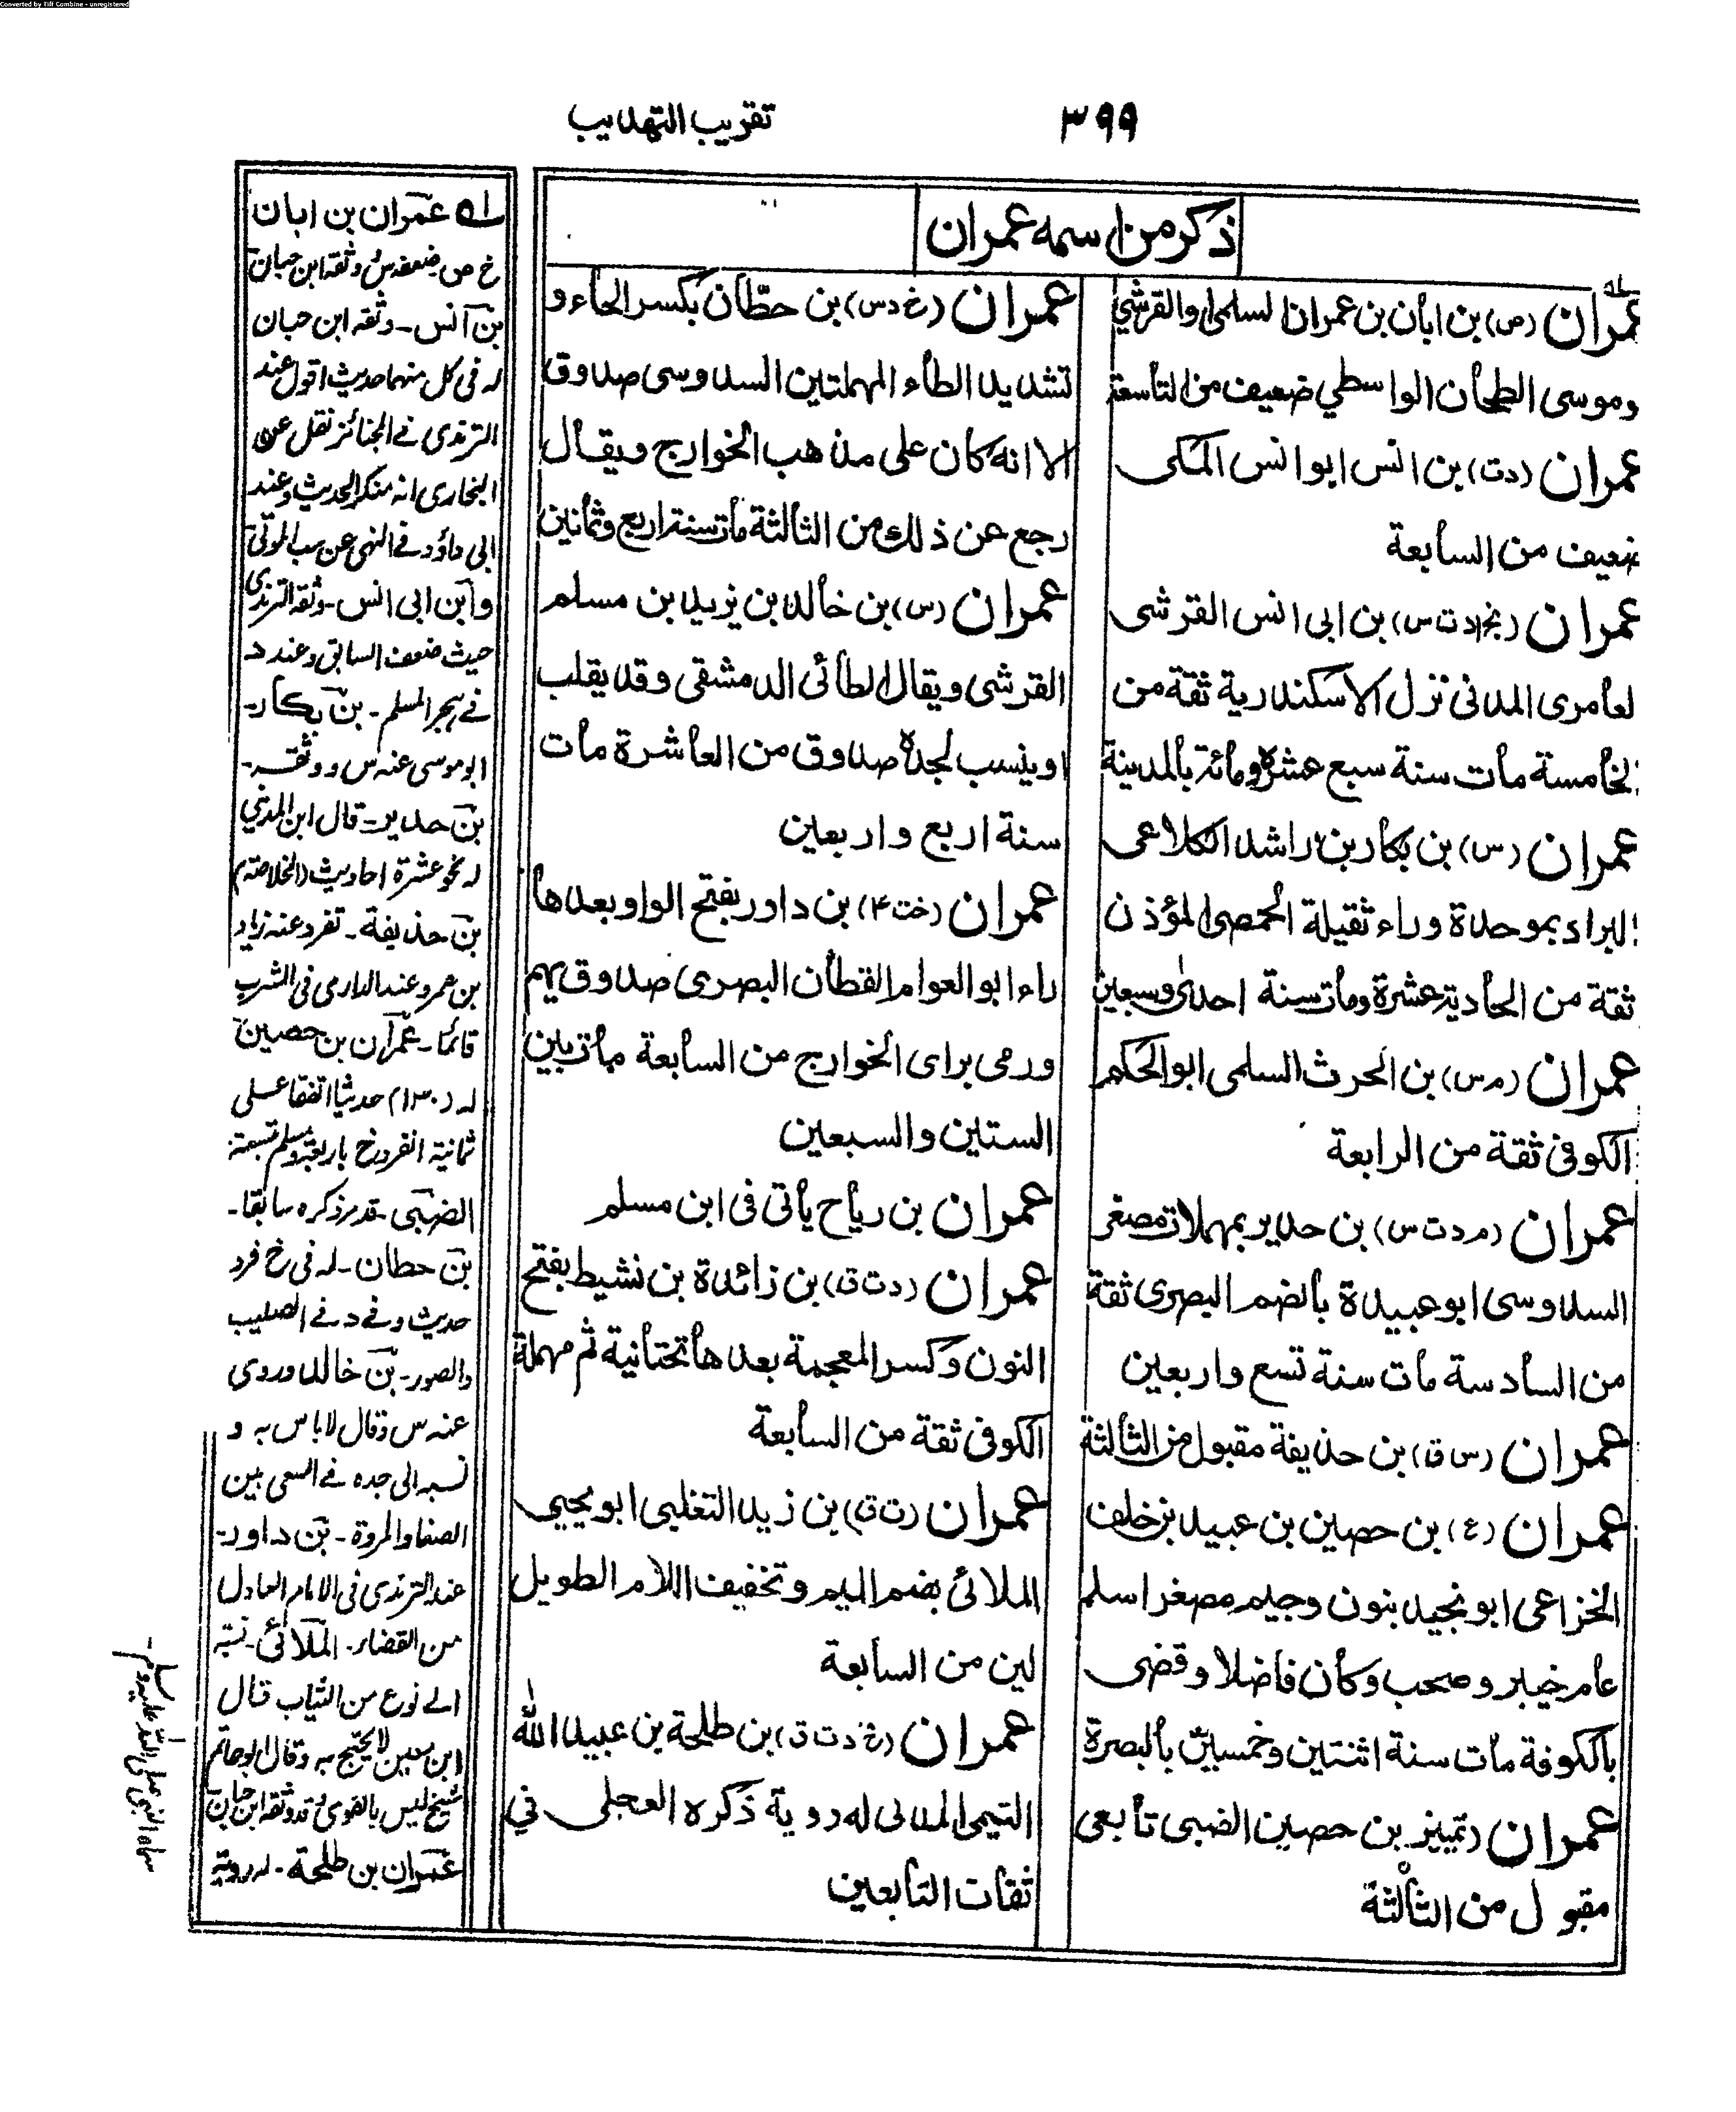 Converted by Tiff Combine - unregistered
٣٩٩
تقريب التهذيب
ذكر من اسمه عمران
عمران (ص) بن ابان بن عمران السلمي او القرشي
وموسى الطحان الواسطي ضعيف من التاسعة
عمران (دت) بن انس ابو انس المكى
ضعيف من السابعة
عمران (بخ ا د ت س) بن ابى انس القرشى
لعامرى المدنى نزل الاسكندرية ثقة من
لخامسة مات سنة سبع عشرة ومائة بالمدينة
عمران (س) بن بكار بن راشد الكلاعى
البراد بموحدة وراء ثقيلة الحمصى المؤذن
ثقة من الحادية عشرة ومات سنة احدى وسبعين
عمران (م س) بن الحرث السلمى ابو الحكم
الكوفى ثقة من الرابعة
عمران (م د ت س) بن حدير بمهملات مصغر
السدوسى ابو عبيدة بالضم البصرى ثقة
من السادسة مات سنة تسع واربعين
عمران (س ق) بن حذيفة مقبول من الثالثة
عمران (ع) بن حصين بن عبيد بن خلف
الخزاعى ابو نجيد بنون وجيم مصغر اسلم
عام خيبر و صحب وكان فاضلا وقضى
بالكوفة مات سنة اثنتين وخمسين بالبصرة
عمران (تمييز بن حصين الضبى تابعى
مقبول من الثالثة
عمران (خ د س) بن حطّان بكسر الحاء و
تشديد الطاء المهملتين السدوسى صدوق
الا انه كان على مذهب الخوارج ويقال
رجع عن ذلك من الثالثة مات سنة اربع وثمانين
عمران (س) بن خالد بن يزيد بن مسلم
القرشى ويقال الطائى الدمشقى وقد يقلب
او ينسب لجده صدوق من العاشرة مات
سنة اربع واربعين
عمران (خت ۴) بن داور بفتح الواو بعدها
راء ابو العوام القطان البصرى صدوق يهم
ورمى براى الخوارج من السابعة مات بين
الستين والسبعين
عمران بن رياح يأتى فى ابن مسلم
عمران (د ت ق) بن زائدة بن نشيط بفتح
النون وكسر المعجمة بعدها تحتانية ثم مهملة
الكوفى ثقة من السابعة
عمران (ت ق) بن زيد التغلبى ابو يحيى
الملائى بضم الميم وتخفيف اللام الطويل
لين من السابعة
عمران (بخ د ت ق) بن طلحة بن عبيد الله
التيمى المدنى له روية ذكره العجلى في
ثقات التابعين
له عمران بن ابان
خ ص ضعفه س وثقه ابن حبان
بن انس - وثقه ابن حبان
له فى كل منهما حديث اقول عند
الترمذى فے الجنائز نقل عن
البخارى انه منكر الحديث وعند
ابى داؤد فے النهى عن سب الموتى
وابن ابى انس - وثقه الترمذى
حيث ضعف السابق وعند د
فے هجر المسلم - بن بكار -
ابو موسى عنه س ووثقه -
بن حدير - قال ابن المدينى
له نحو عشرة احاديث (الخلاصة)
بن حذيفة - تفرد عنه زياد
بن عمرو عند الدارمى فى الشرب
قائما - عمران بن حصين
له (١٣٠) حديثا اتفقا على
ثمانية انفرد خ باربعة ومسلم بتسعة
الضبى - قد مر ذكره سابقا -
بن حطان - له فى خ فرد
حديث وفے د فے الصليب
والصور - بن خالد وروى
عنه س وقال لا باس به و
نسبه الى جده فے السعى بين
الصفا والمروة - بن داور -
عند الترمذى فى الامام العادل
من القضاء - الملائى - نسبة
الے نوع من الثياب قال
ابن معين لا يحتج به وقال ابو حاتم
شيخ ليس بالقوى وقد وثقه ابن حبان
عمران بن طلحة - له روية
سماه النبى صلى الله عليه وسلم -